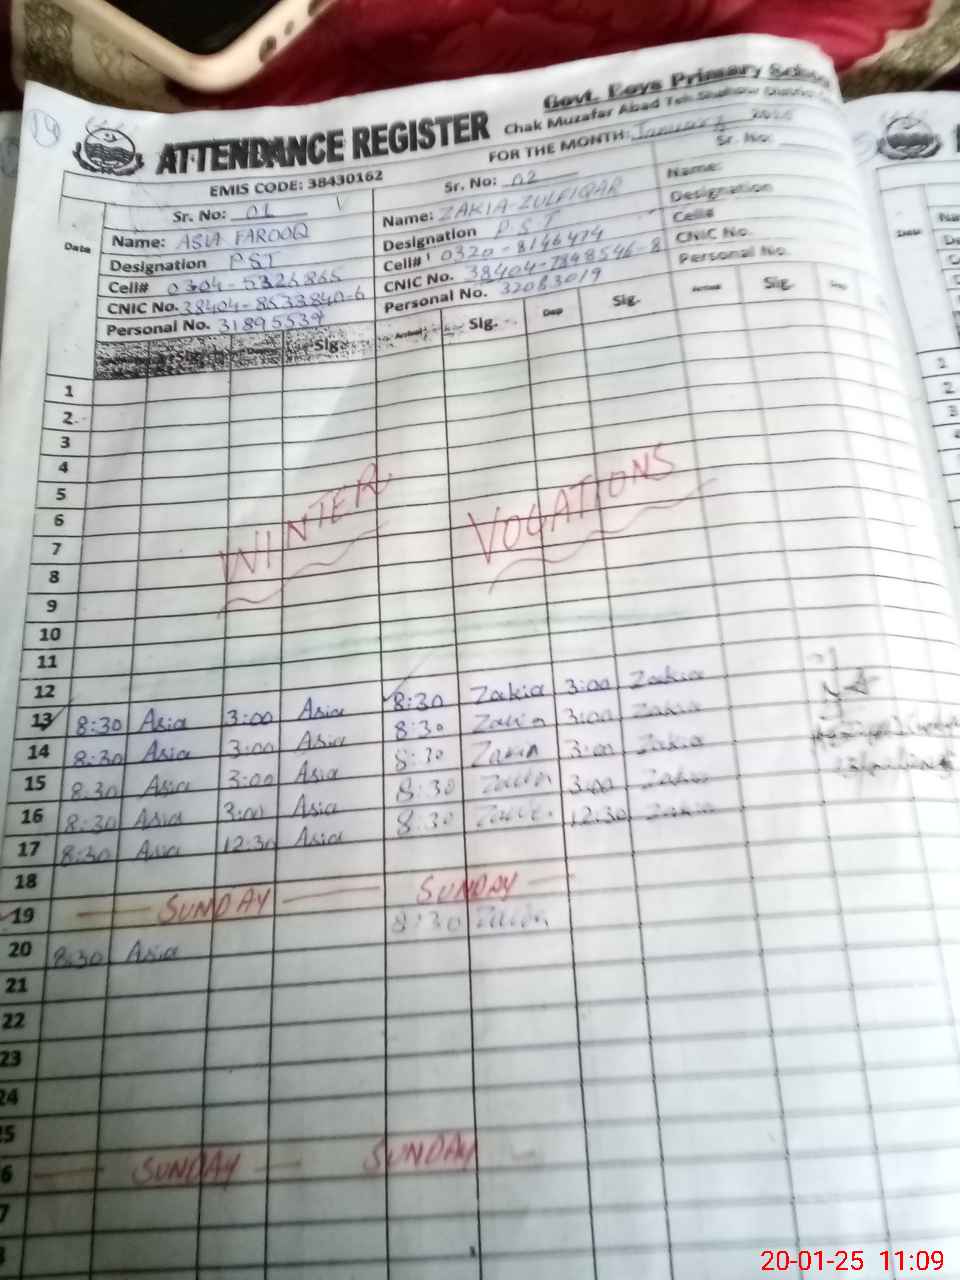 19
Govt. Boys Primary School
ATTENDANCE REGISTER
Chak Muzafar Abad Teh Shahpur District
EMIS CODE: 38430162
FOR THE MONTH: January 2025
Sr. No: 01
Sr. No: 02
Sr. No:
Date
Name: ASIA FAROOQ
Name: ZAKIA ZULFIQAR
Name:
Designation PST
Designation PST
Designation
Cell# 0304-5326865
Cell# 0320-8146474
Cell#
CNIC No. 38404-8533840-6
CNIC No. 38404-7848546-8
CNIC No.
Personal No. 31895539
Personal No. 32083019
Personal No.
Sig. Sig. Arrival Sig. Dep Sig. Arrival Sig. Dep
1
2
3
4
5
WINTER VOCATIONS
6
7
8
9
10
11
12
13 8:30 Asia 3:00 Asia 8:30 Zakia 3:00 Zakia
14 8:30 Asia 3:00 Asia 8:30 Zakia 3:00 Zakia
15 8:30 Asia 3:00 Asia 8:30 Zakia 3:00 Zakia
16 8:30 Asia 3:00 Asia 8:30 Zakia 3:00 Zakia
17 8:30 Asia 12:30 Asia 8:30 Zakia 12:30 Zakia
18
19 SUNDAY SUNDAY
20 8:30 Asia 8:30 Zakia
21
22
23
24
5
6 SUNDAY SUNDAY
7
8
Date
1
2
3
20-01-25 11:09